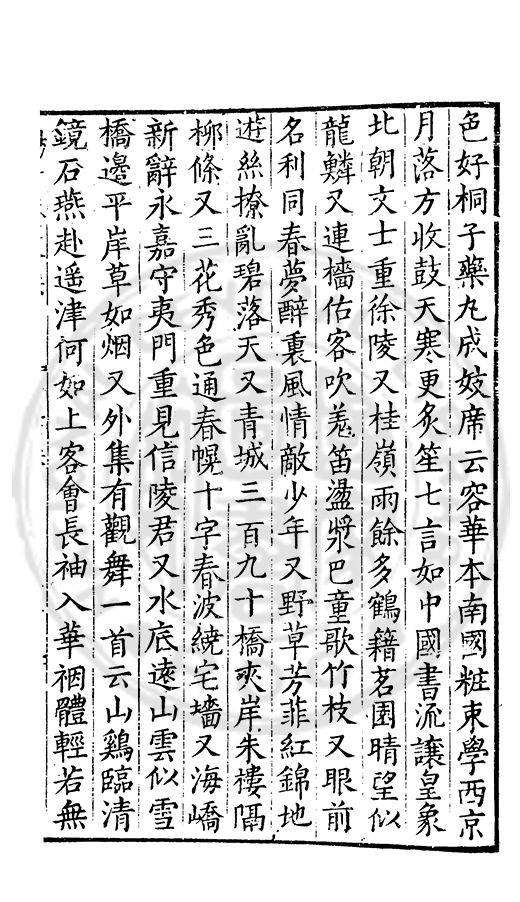 色好桐子藥丸成妓席云容華本南國粧束學西京
月落方收鼓天寒更炙笙七言如中國書流讓皇象
北朝文士重徐陵又桂嶺雨餘多鶴籍茗園晴望似
龍鱗又連檣估客吹羗笛盪槳巴童歌竹枝又眼前
名利同春夢醉裏風情敵少年又野草芳菲紅錦地
遊絲撩亂碧落天又青城三百九十橋夾岸朱樓隔
柳條又三花秀色通春幌十字春波繞宅墻又海嶠
新辭永嘉守夷門重見信陵君又水底遠山雲似雪
橋邊平岸草如烟又外集有觀舞一首云山鷄臨清
鏡石燕赴遥津何如上客會長袖入華裀體輕若無